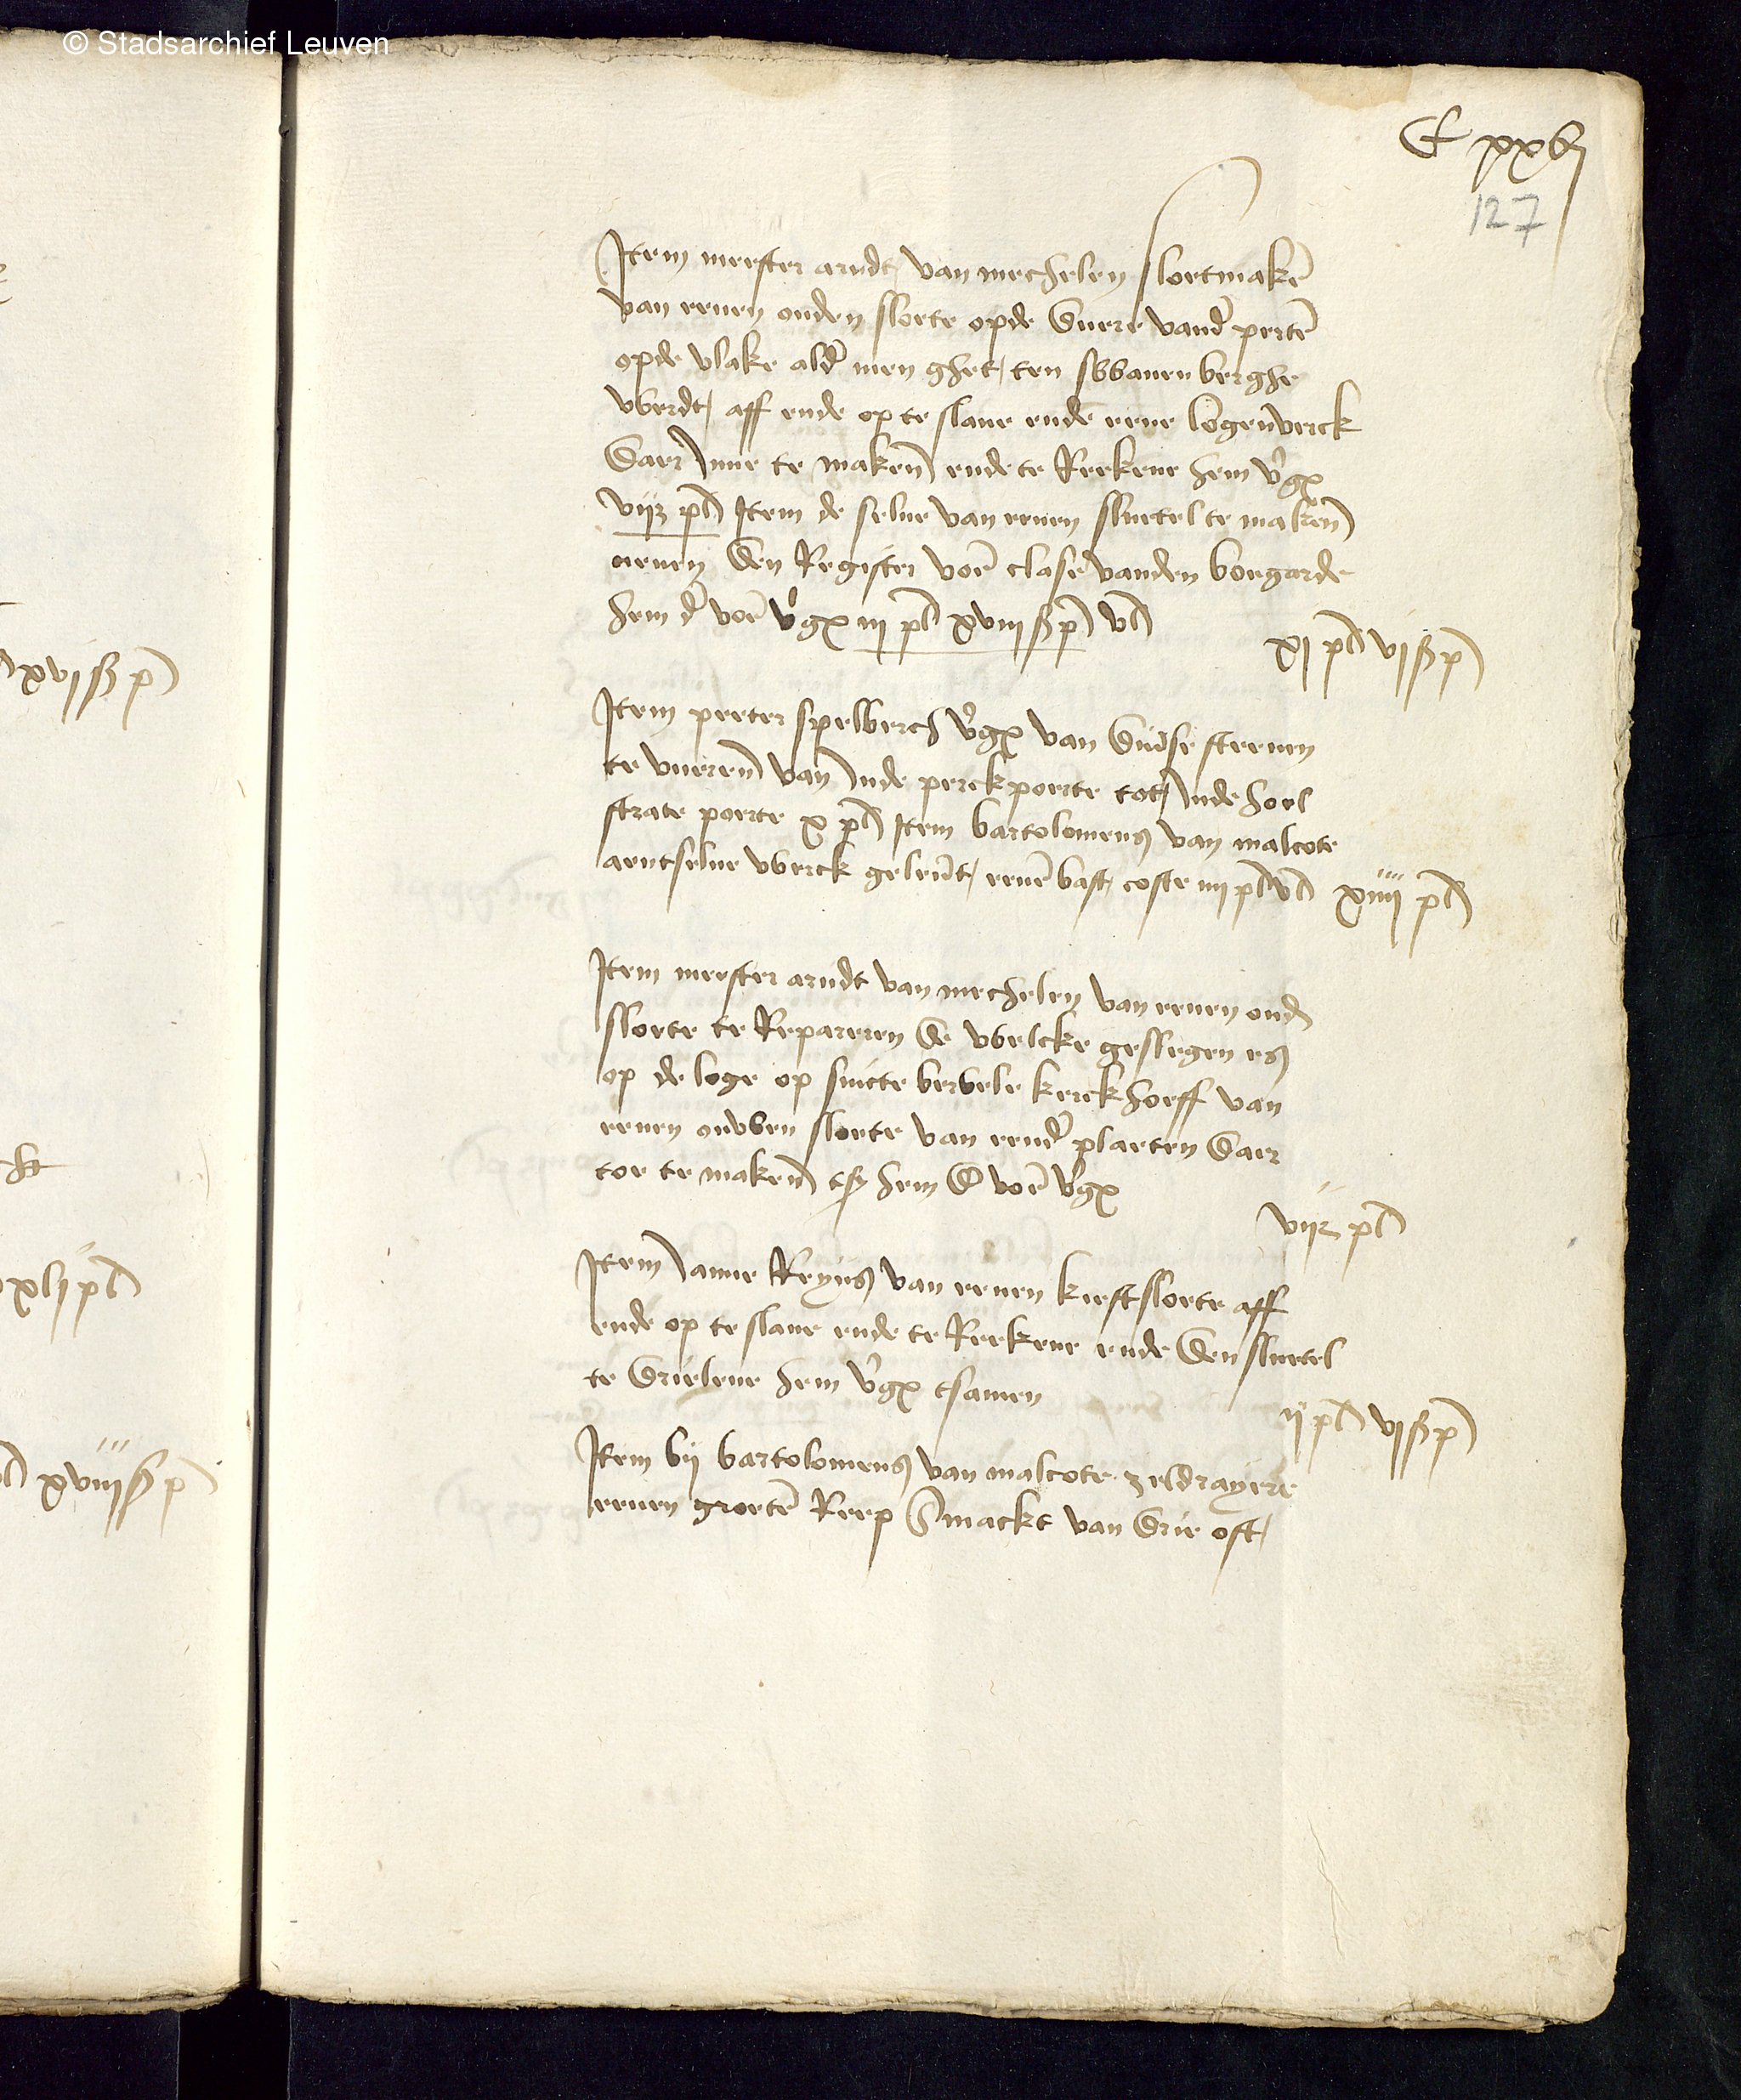 © Stadsarchief Leuven
C xxvj
127
Item meester arndt van mechelen sloetmakē
van eenen ouden sloete opde duere vand' poertē
opde vlake ald' men ghet ten swanenberghe
werdt aff ende op te slane ende eene logenwerck
daer Inne te maken ende te Reekene hem v'gx
vijz pl Item de selve van eenen sluetel te maken
aenen den Register voer clase vanden bogarde
hem d' voē v'gx iij pl xviij ß p vl
xj pl vj ß p
Item peeter spelberch v'gx van dudse steenen
te vueren van Inde perckpoerte tot Inde hoel
strate poerte x pl Item bartolomeus van malcote
aent selve werck geleūt eenē bast coste iiij pl vl
xiiij pl
Item meester arndt van mechelen van eenen oud
sloete te Repareren de welcke geslegen es
op de loge op sincte kerkhoeff van
eenen ouwen sloete van eend' plaeten daer
toe te maken hem d' voē v'gx
vijz pl
Item Janne Reyns van eenen kiestsloete aff
ende op te slane ende te Reekene ende den sluetel
te drielene hem v'gx tsamen
ij pl vj ß p
Item bij bartolomeus van malcote zeeldrayere
eenen groetē Reep gemackt van drie oft
xvj ß p
xlij pl
xviij ß p